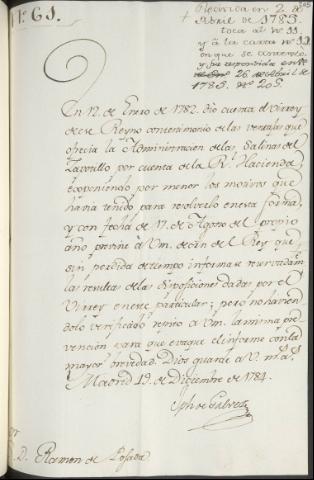 N.º 61.
Recivida en 2 de
Abril de 1785.
toca al nº 11
y à la carta nº
en que se
y fue respondida en
26 de Abril de
1785. nº 205
En 12. de Enero de 1782. dio cuenta el Virrey
de ese Reyno con testimonio de las ventajas que
ofrecia la Administracion de las Salinas del
por cuenta de la Rl. Hacienda,
exponiendo por menor los motivos que
havia tenido para resolverlo en esta forma,
y con fecha de 17. de Agosto del proprio
año previne à Vm. de orn del Rey que
sin perdida de tiempo informase reservadamte.
las resultas de las disposiciones dadas por el
Virrey en este particular; pero no havien
dolo verificado repito à Vm. la misma pre
vencion para que evaque el informe con la
mayor brevedad. Dios guarde à V. ms. as.
Madrid 19. de Diciembre de 1784.
Jph de Galvez
Sor. D. Ramon de Posada